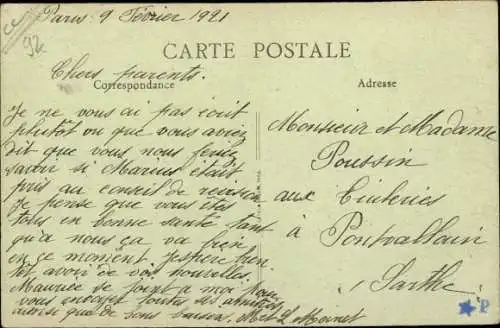 Paris 9 Février 1921
CARTE POSTALE
Chers parents.
Correspondance
Adresse
Je ne vous ai pas écrit
plutôt vu que vous aviez
dit que vous nous feriez
savoir si Marius était
pris au conseil de revision
Je pense que vous êtes
tous en bonne santé tant
qu'a nous ça va bien
en ce moment. J'espère bien
tôt avoir de vos nouvelles.
Maurice se joint a moi pour
vous envoyer toutes ses amitiés
ainsi que de bons baisers.
Monsieur et Madame
Poussin
aux Tuileries
à Pontvallain
Sarthe
92
P